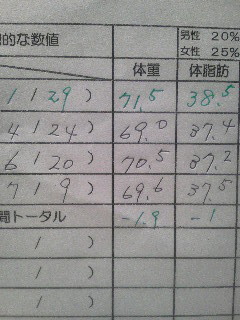 的な数値
男性 20%
女性 25%
体重 体脂肪
1 / 29 ) 71.5 38.5
4 / 24 ) 69.0 37.4
6 / 20 ) 70.5 37.2
7 / 9 ) 69.6 37.5
間トータル -1.9 -1
/ )
/ )
/ )